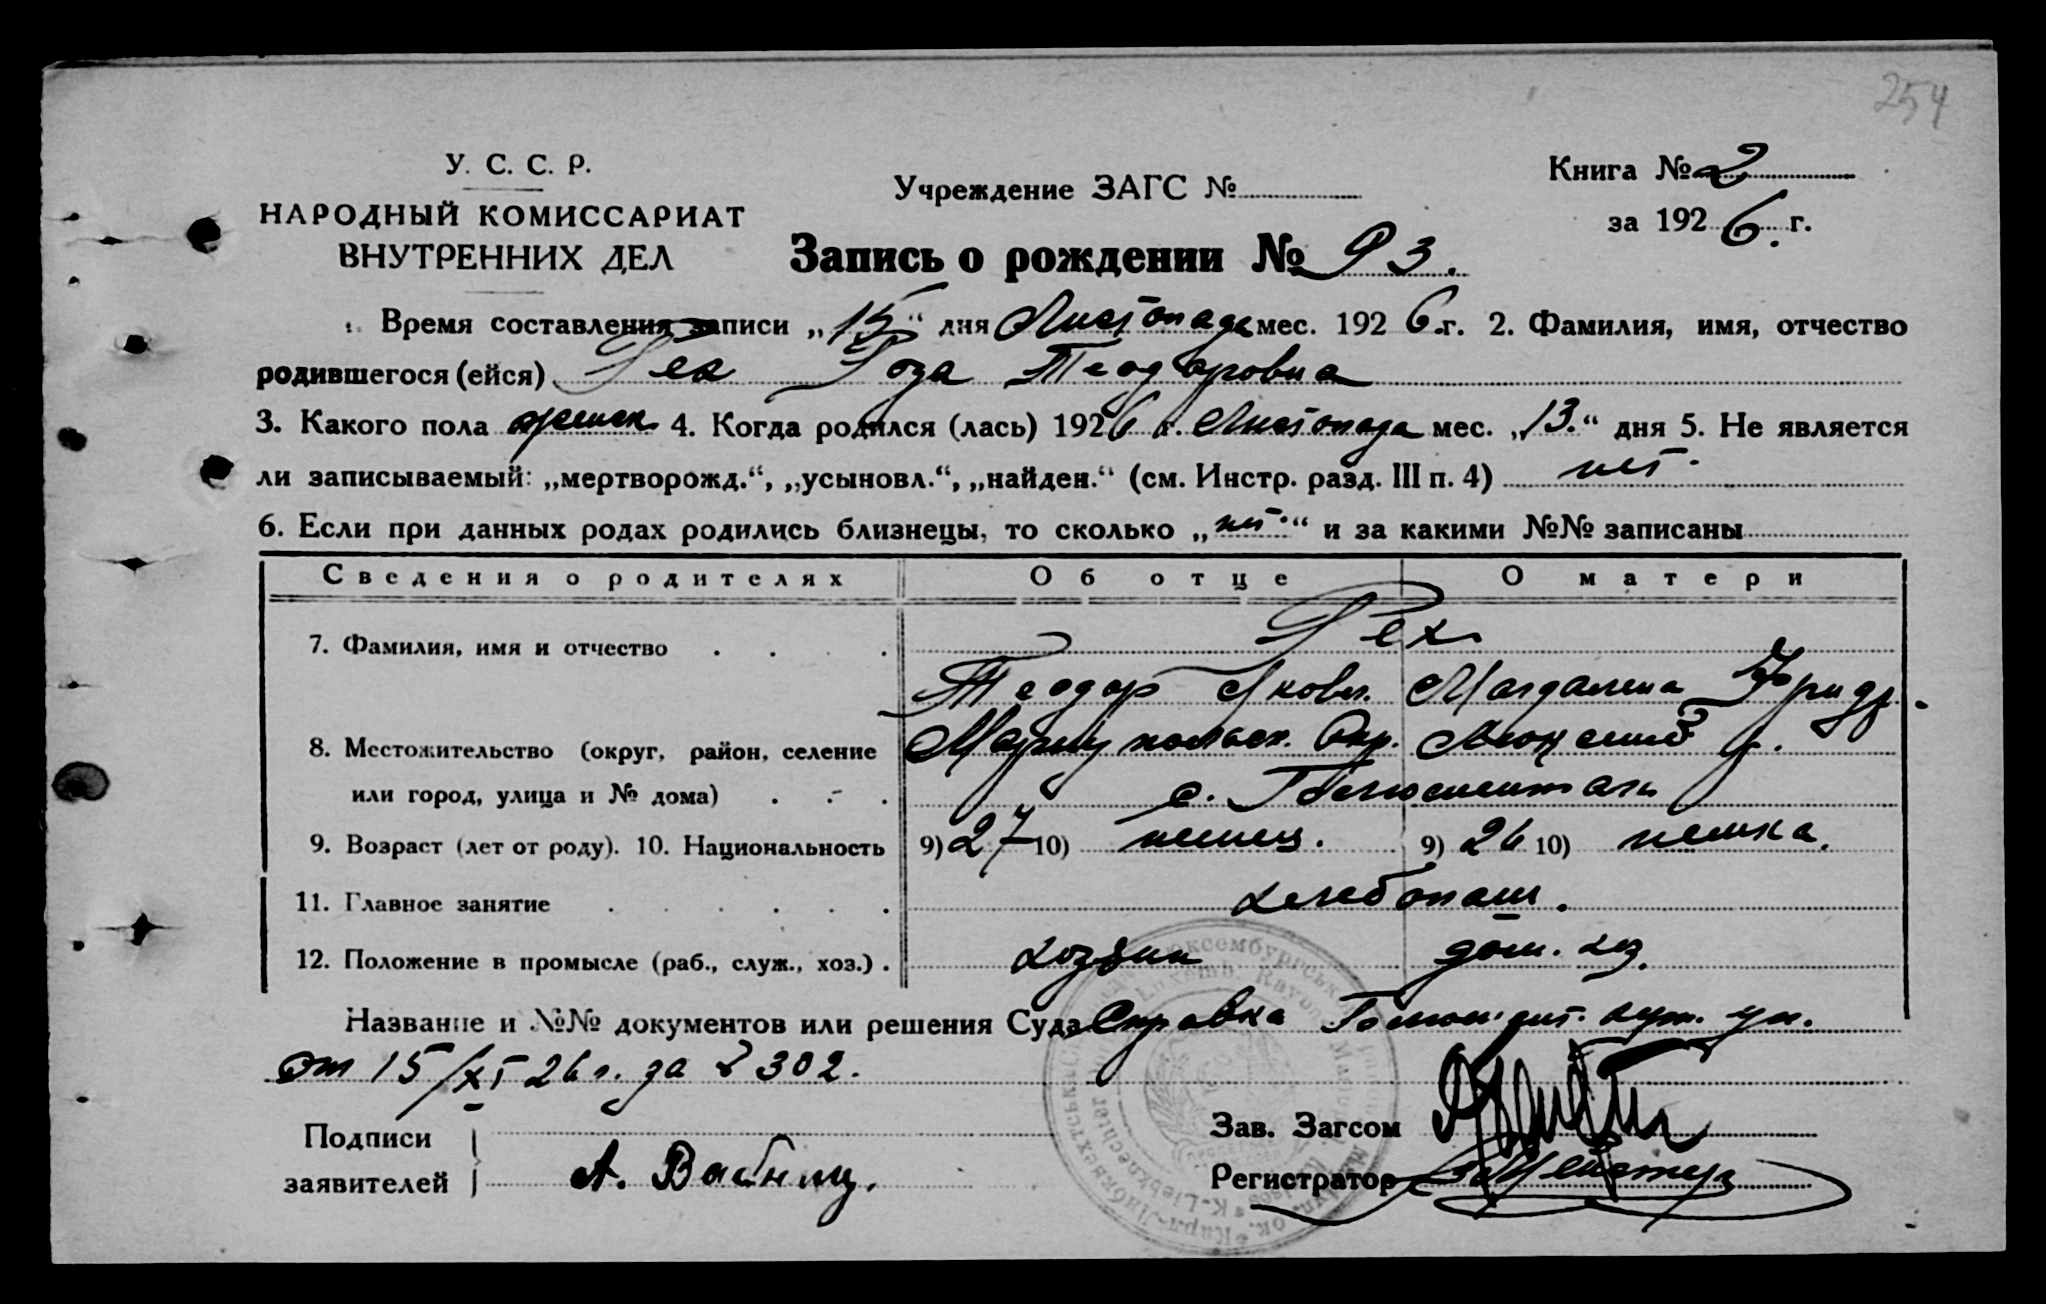 254
У. С. С. Р.
НАРОДНЫЙ КОМИССАРИАТ
ВНУТРЕННИХ ДЕЛ
Учреждение ЗАГС №
Книга № 2
за 1926 г.
Запись о рождении № 93.
1. Время составления записи „15“ дня Листопада мес. 1926 г. 2. Фамилия, имя, отчество
родившегося (ейся) Рех Роза Теодоровна
3. Какого пола женск. 4. Когда родился (лась) 1926 г. Листопада мес. „13.“ дня 5. Не является
ли записываемый: „мертворожд.“, „усыновл.“, „найден.“ (см. Инстр. разд. III п. 4) нет.
6. Если при данных родах родились близнецы, то сколько „нет.“ и за какими №№ записаны
Сведения о родителях Об отце О матери
7. Фамилия, имя и отчество Рех
Теодор Яковл. Магдалина Фридр.
8. Местожительство (округ, район, селение Мариупольск. Окр.
или город, улица и № дома) с.
9. Возраст (лет от роду). 10. Национальность 9) 27 10) немец. 9) 26 10) немка.
11. Главное занятие хлебопаш.
12. Положение в промысле (раб., служ., хоз.) хозяин дом. хоз.
Название и №№ документов или решения Суда Справка
от 15/XI 26 г. за № 302.
Подписи
заявителей
А.
Зав. Загсом
Регистратор